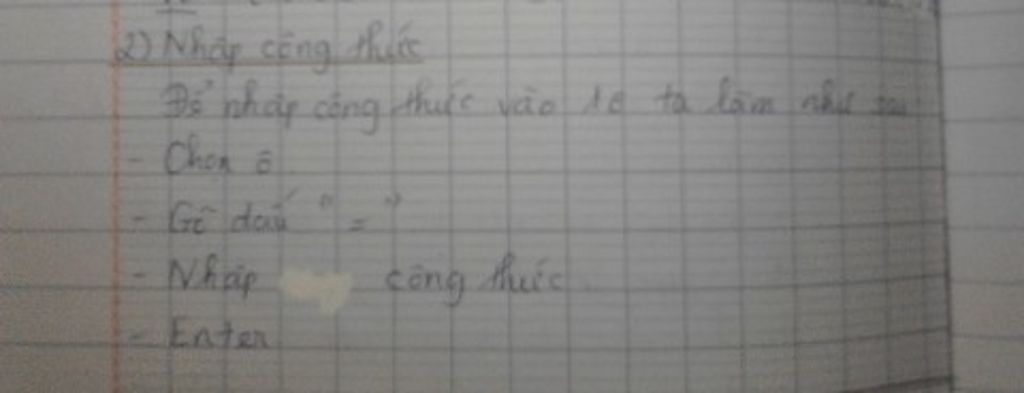 2) Nhập công thức
Để nhập công thức vào 1 ô ta làm như sau
- Chọn ô
- Gõ dấu "="
- Nhập công thức.
- Enter